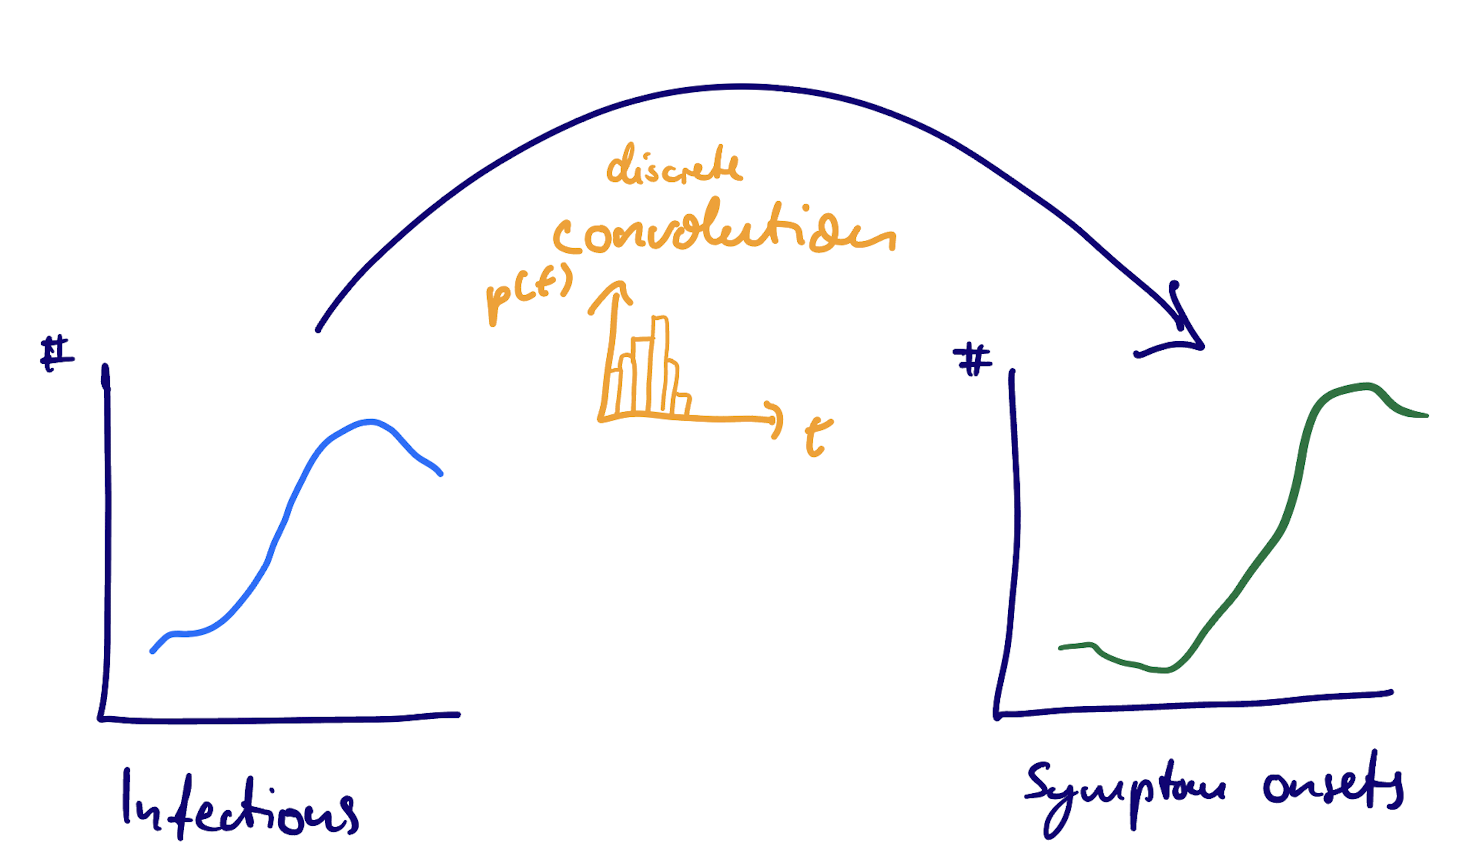 discrete
convolution
p(t)
t
#
#
Infections
Symptom onsets